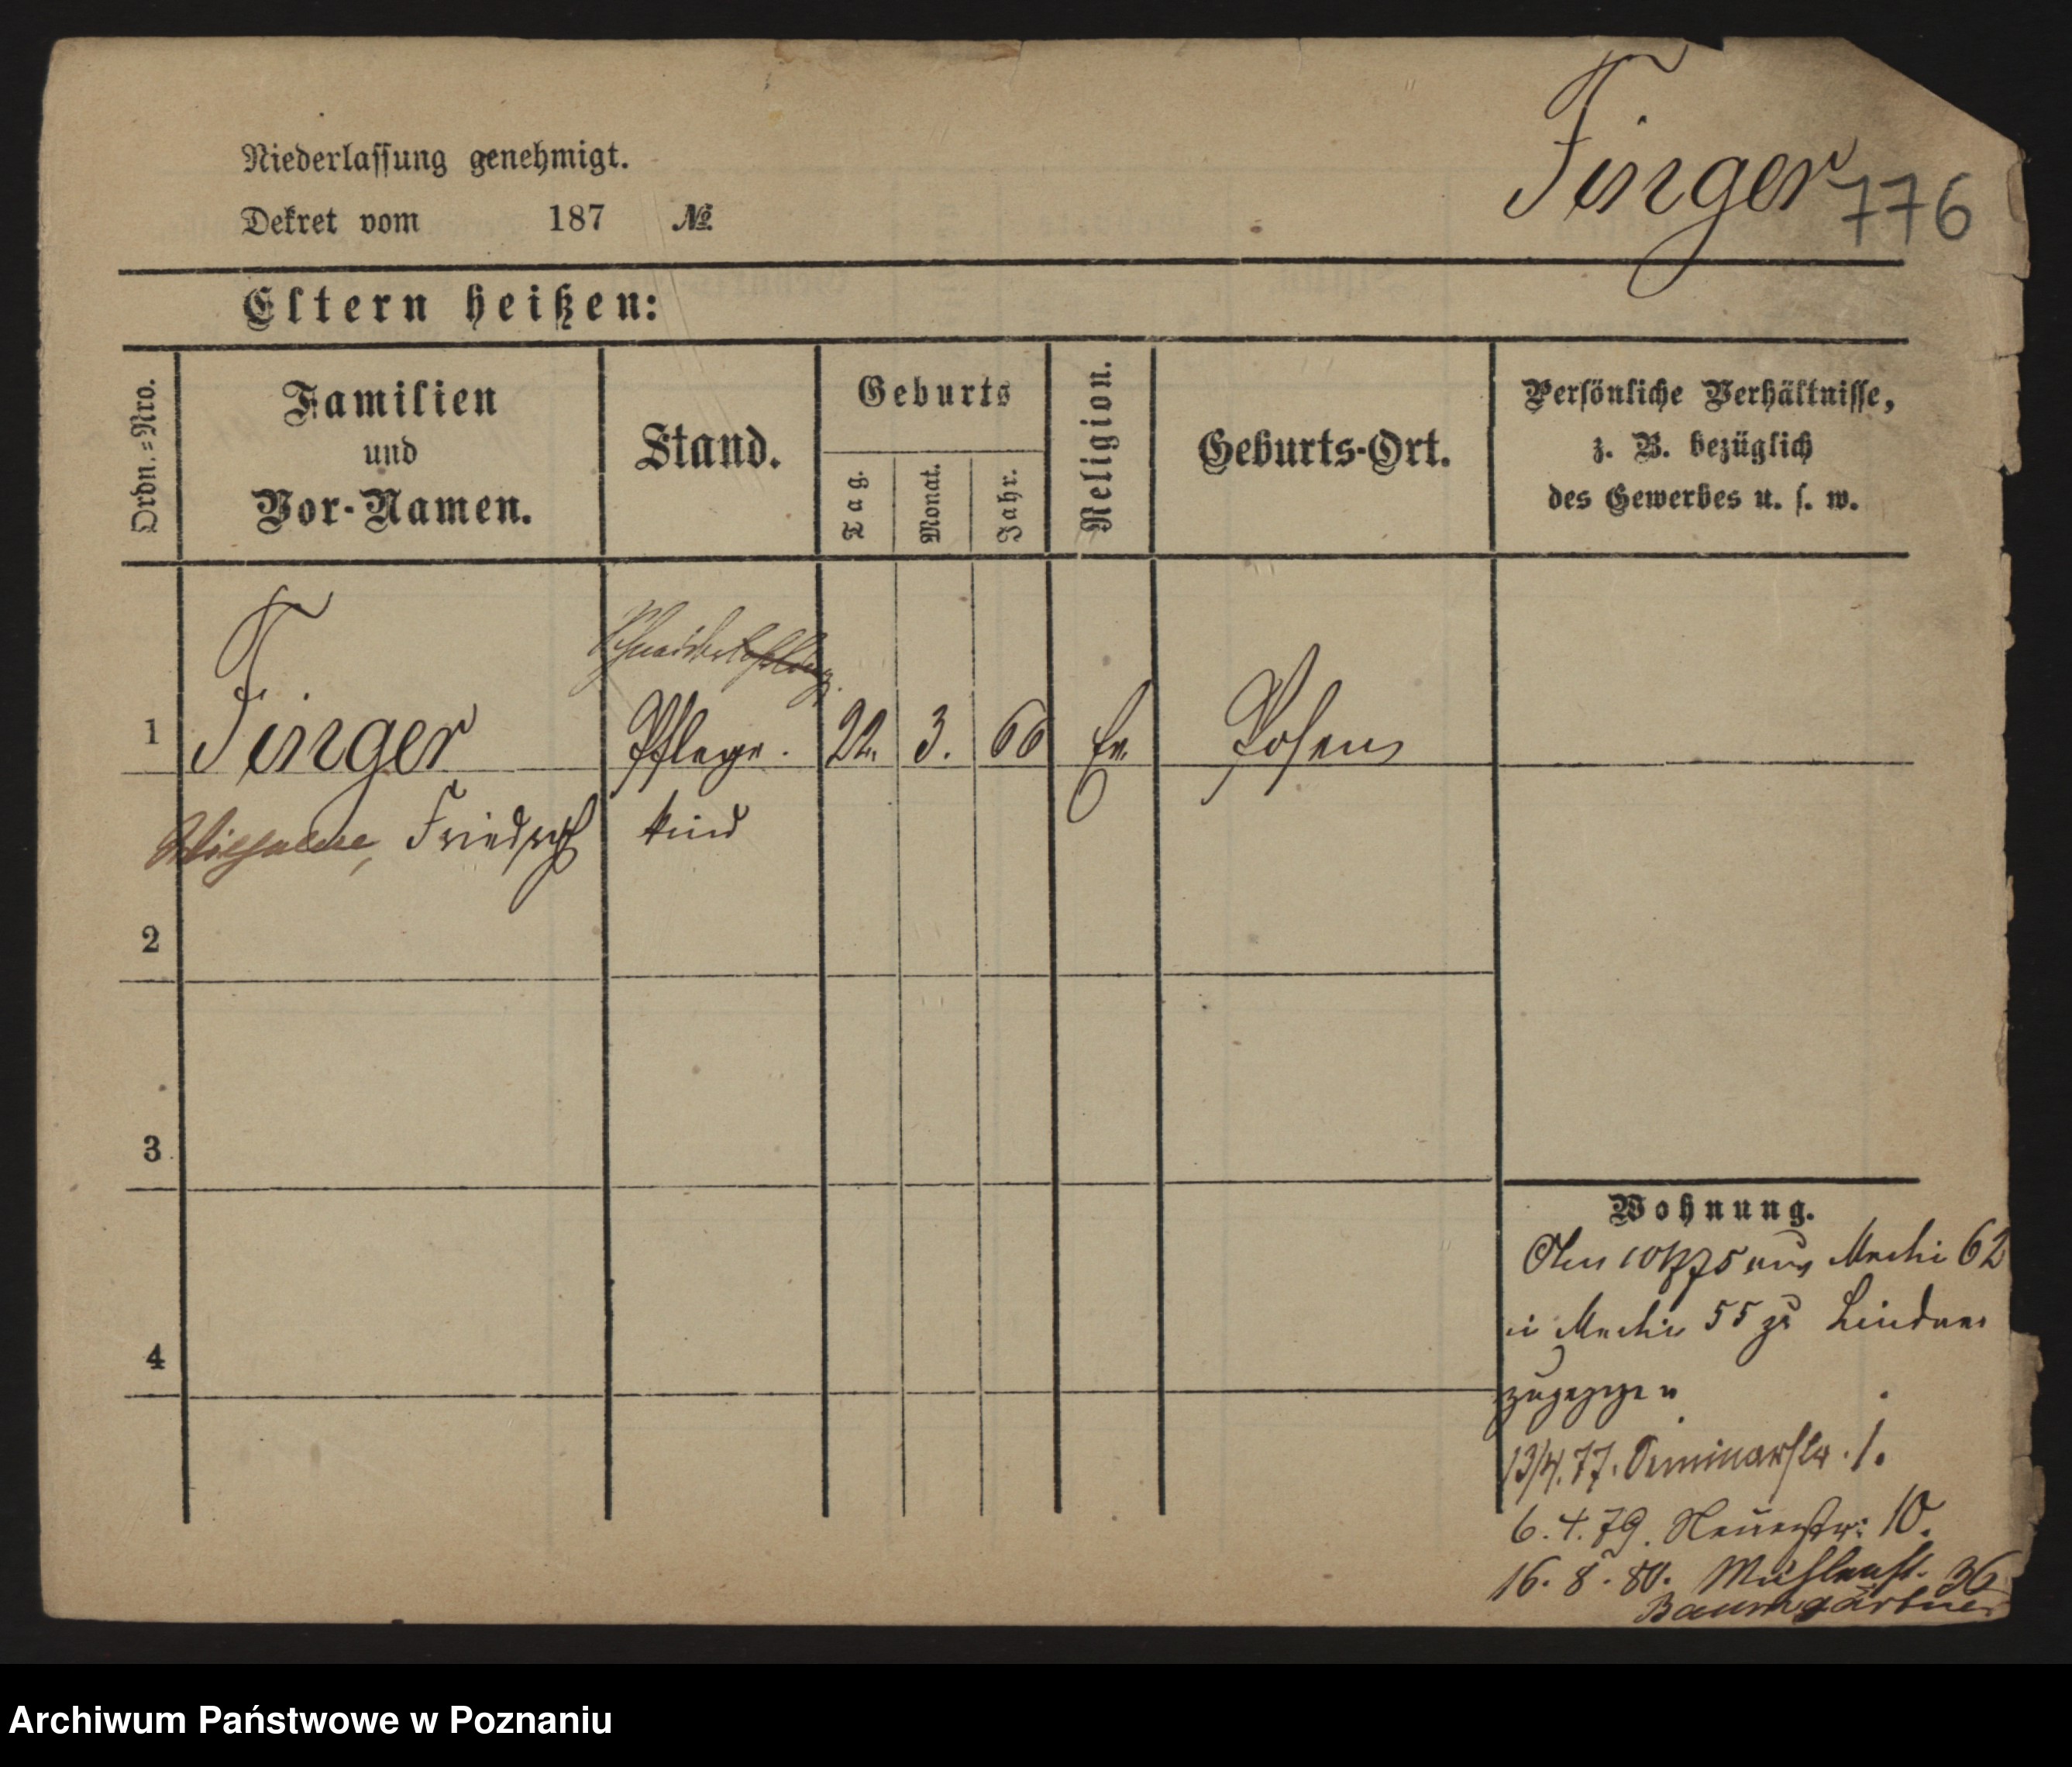 Finger
776
Niederlassung genehmigt.
Dekret vom 187 №
Eltern heißen:
Ordn.=Nro.
Familien
und
Vor-Namen.
Stand.
Geburts
Tag.
Monat.
Jahr.
Religion.
Geburts-Ort.
Persönliche Verhältnisse,
z. B. bezüglich
des Gewerbes u. s. w.
Schneiderlehrling.
1 Finger Pflege. 22. 3. 66 Ev. Posen
Friedrich kind
2
3
4
Wohnung.
62
55 zu Lindner
zugezogen
13/4.77. Seminarstr. 1.
6.4.79. Neuestr: 10.
16.8.80. Mühlenst. 36
Baumgärtner
Archiwum Państwowe w Poznaniu